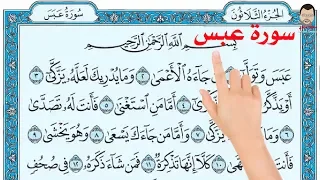 الجُزْءُ الثَّلَاثُونَ
سُورَةُ عَبَسَ
سورة عبس
بِسْمِ اللَّهِ الرَّحْمَٰنِ الرَّحِيمِ
عَبَسَ وَتَوَلَّىٰٓ جَآءَهُ ٱلْأَعْمَىٰ ٢ وَمَا يُدْرِيكَ لَعَلَّهُۥ يَزَّكَّىٰٓ ٣
أَوْ يَذَّكَّرُ أَمَّا مَنِ ٱسْتَغْنَىٰ ٥ فَأَنتَ لَهُۥ تَصَدَّىٰ
٦ وَمَا عَلَيْكَ وَأَمَّا مَن جَآءَكَ يَسْعَىٰ ٨ وَهُوَ يَخْشَىٰ ٩
فَأَنتَ عَنْهُ تَلَهَّىٰ ١٠ كَلَّآ إِنَّهَا تَذْكِرَةٌ ١١ فَمَن شَآءَ ذَكَرَهُۥ ١٢ فِى صُحُفٍ